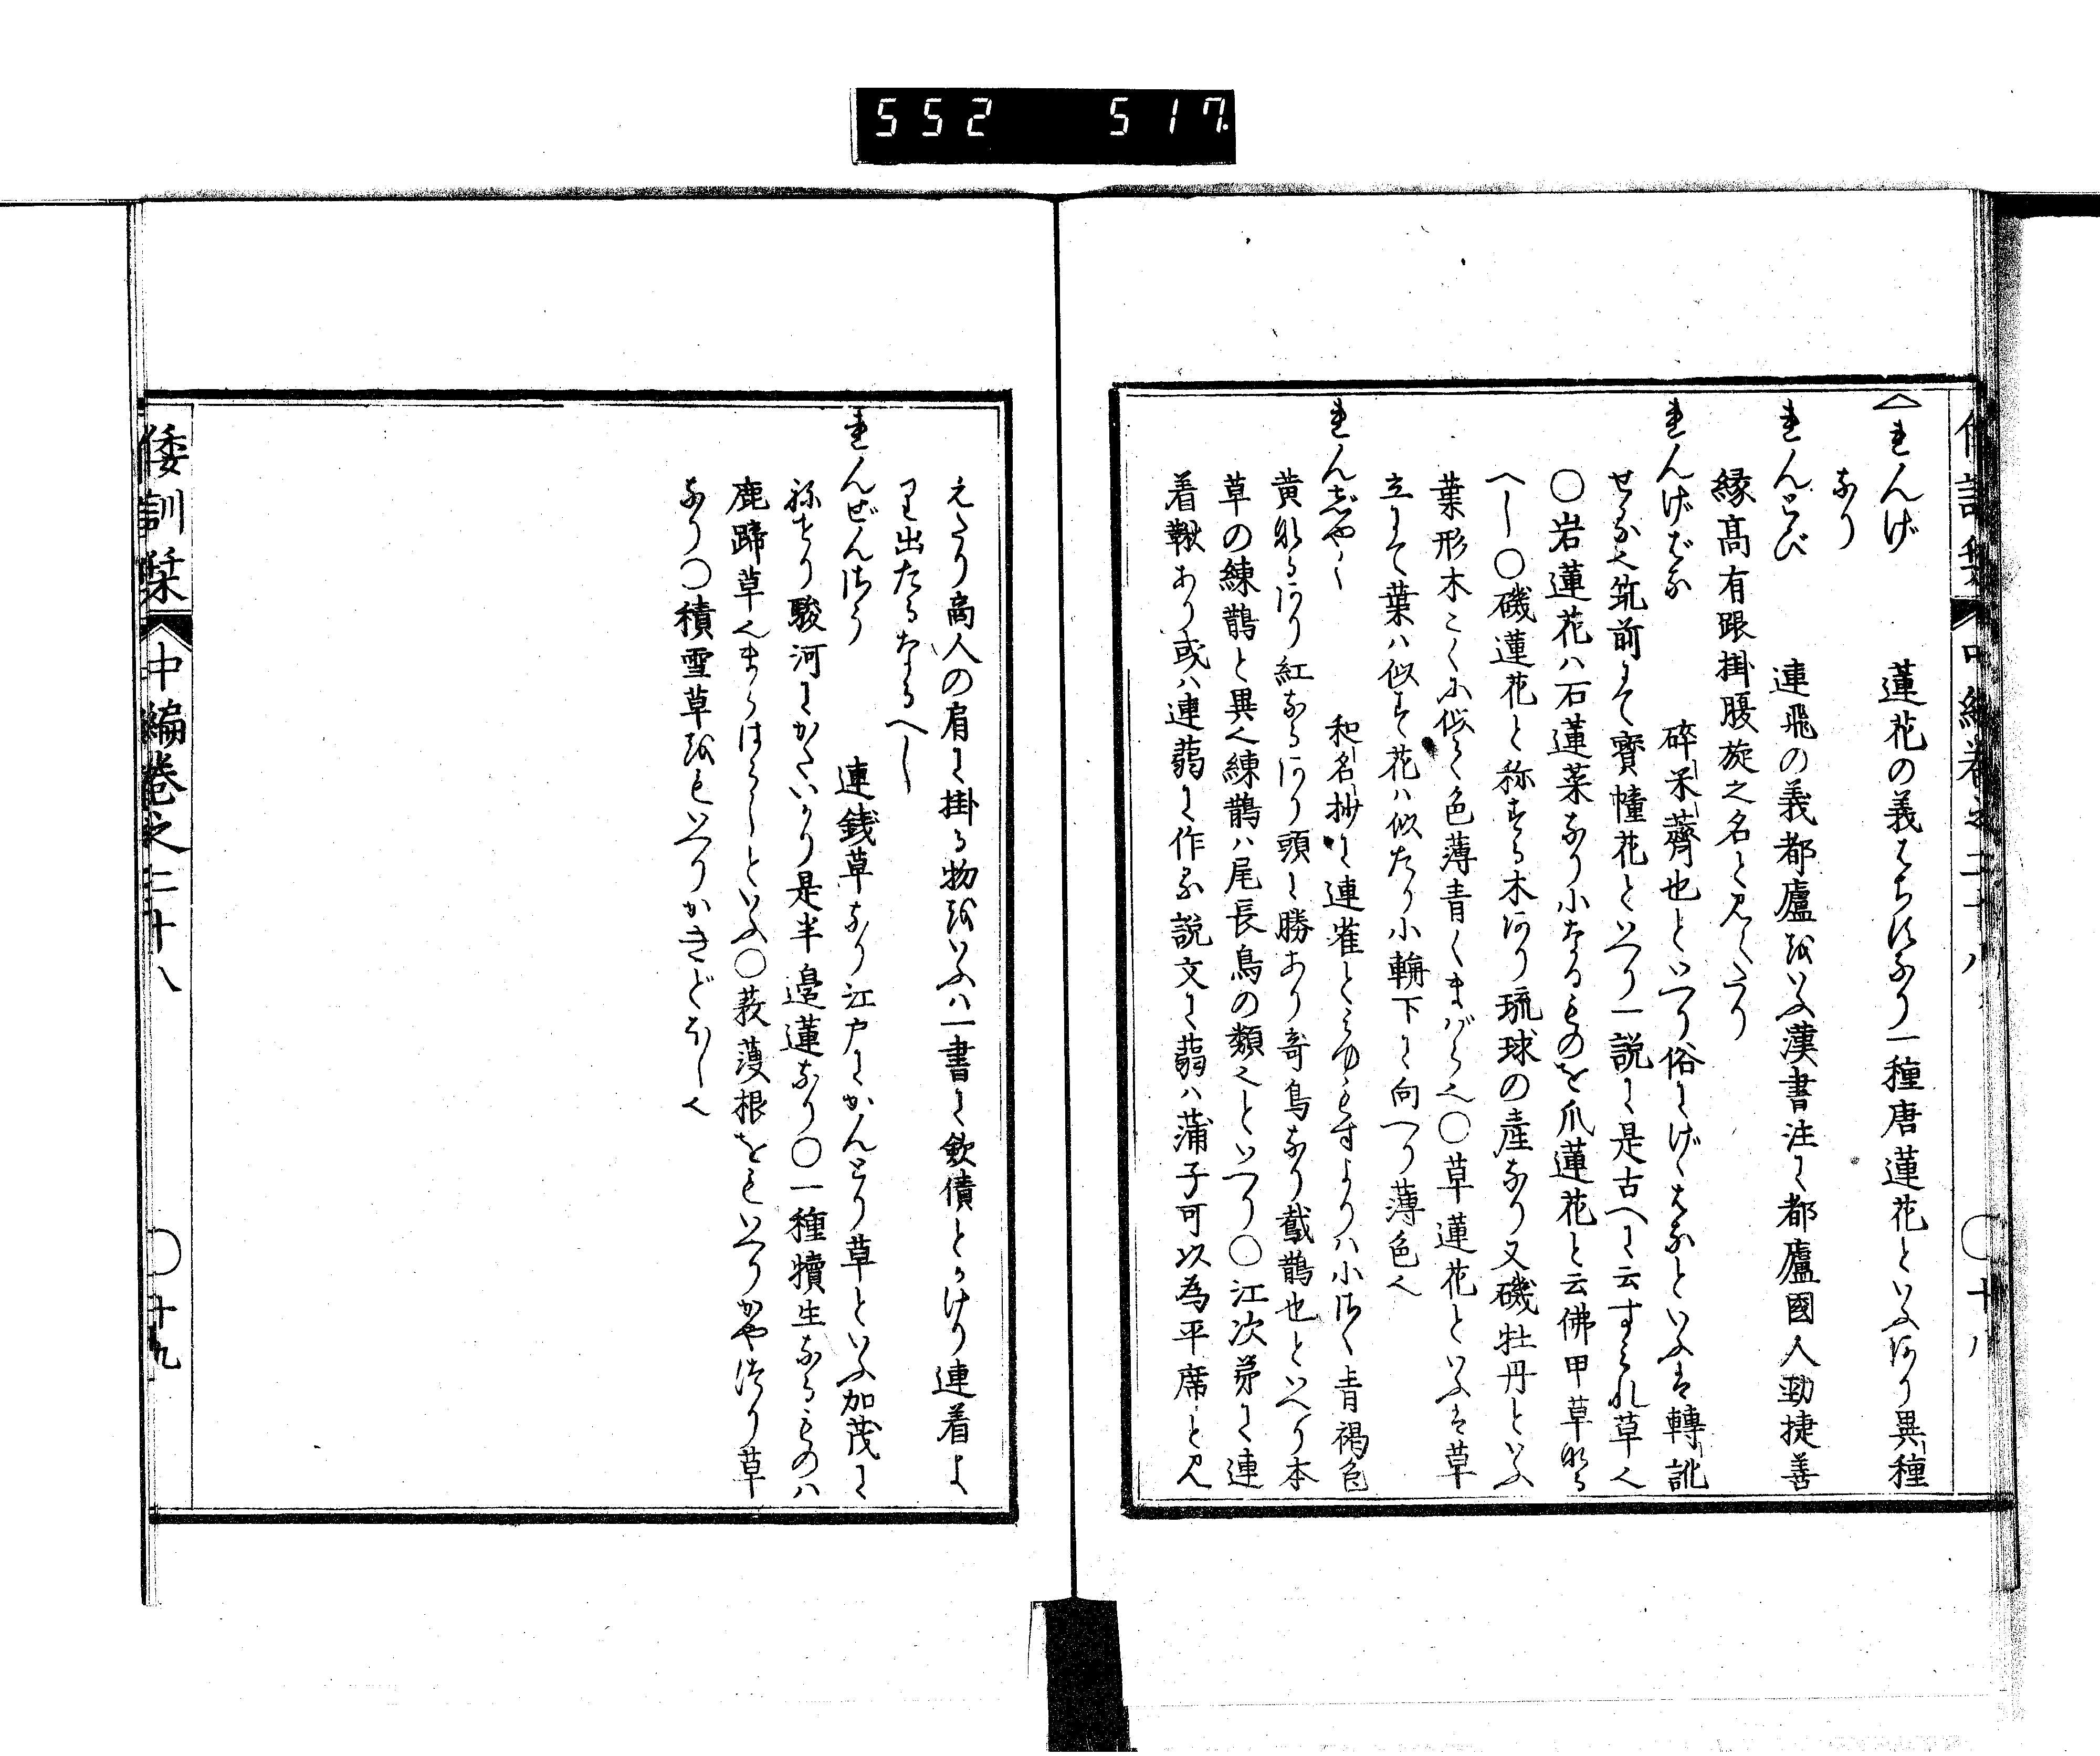 552 517.
倭訓栞 中編巻之二十八 〇十八
れんげ 蓮花の義はちすなり一種唐蓮花といふあり異種
なり
れんとび 連飛の義都廬をいふ漢書注に都廬國人勁捷善
縁高有跟掛腹旋之名と見えたり
れんげばな 碎米薺也といへり俗にげゞばなといふは轉訛
せる也筑前にて寳幢花といへり一説に是古へに云すみれ草也
〇岩蓮花ハ石蓮菜なり小なるものを爪蓮花と云佛甲草なる
へし〇磯蓮花と称する木あり琉球の産なり又磯牡丹といふ
葉形木こくに似て色薄青くまばら也〇草蓮花といふは草
立にて葉ハ似す花ハ似たり小輪下に向へり薄色也
れんじやく 和名抄に連雀とみゆもずよりハ小さく青褐色
黄なるあり紅なるあり頭に勝あり奇鳥なり戴鵲也といへり本
草の練鵲と異也練鵲ハ尾長鳥の類也といへり〇江次第に連
着鞦あり或ハ連蒻に作る説文に蒻ハ蒲子可以為平席と見
えたり商人の肩に掛る物をいふハ一書に歛債とかけり連着よ
り出たるなるへし
れんぜんさう 連銭草なり江戸にかんとり草といふ加茂に
祢せり駿河にかたいかり是半邉蓮なり〇一種犢生なるものハ
鹿蹄草也まるはくしといふ〇菝葜根をもいへりかやつり草
なり〇積雪草をもいへりかきどほし也
倭訓栞 中編巻之二十八 〇十九